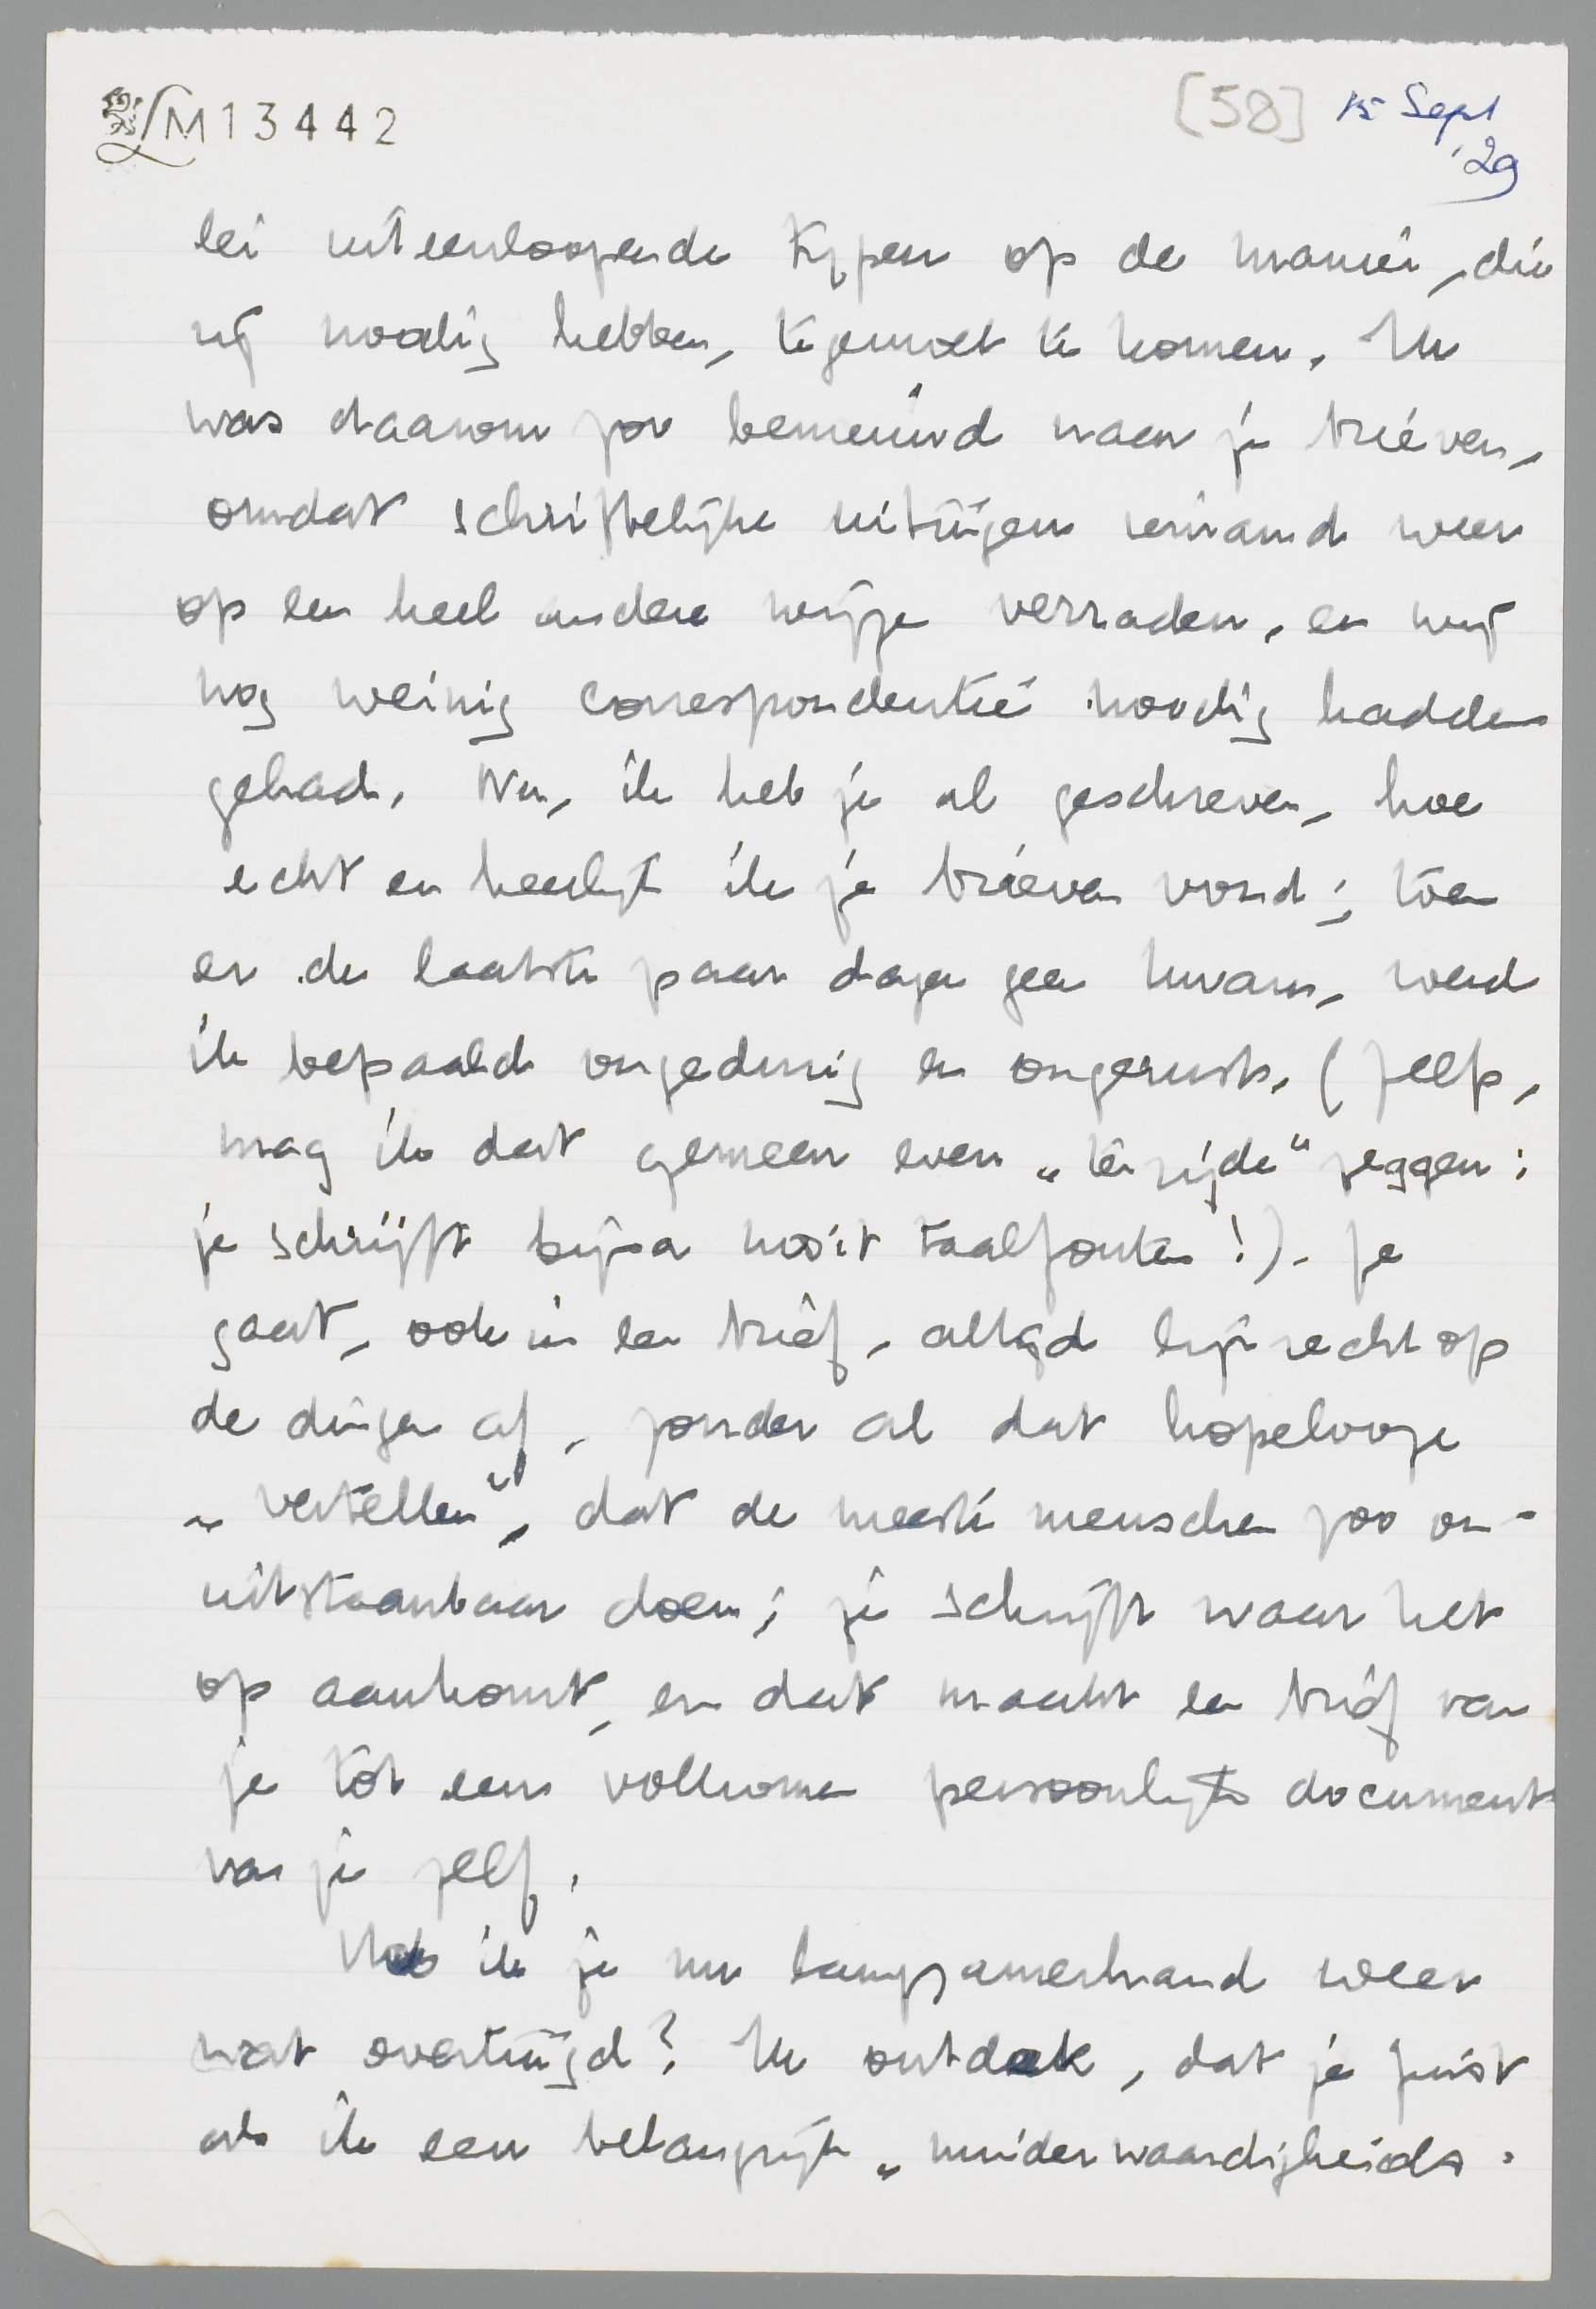 LM13442
[58] 15 Sept
'29
lei uiteenloopende typen op de manier, die
zij noodig hebben, tegemoet te komen. Ik
was daarom zoo benieuwd naar je brieven,
omdat schriftelijke uitingen iemand weer
op een heel andere wijze verraden, en wij
nog weinig correspondentie noodig hadden
gehad. Nu, ik heb je al geschreven, hoe
echt en heerlijk ik je brieven vond; toen
er de laatste paar dagen geen kwam, werd
ik bepaald ongedurig en ongerust. (Zelfs,
mag ik dat gemeen even „terzijde" zeggen:
je schrijft bijna nooit taalfouten!). Je
gaat, ook in een brief, altijd lijnrecht op
de dingen af, zonder al dat hopelooze
„vertellen", dat de meeste menschen zoo on-
uitstaanbaar doen; je schrijft waar het
op aankomt, en dat maakt een brief van
je tot een volkomen persoonlijk document
van je zelf.
Heb ik je nu langzamerhand weer
wat overtuigd? Ik ontdek, dat je juist
als ik een belangrijk „minderwaardigheids-